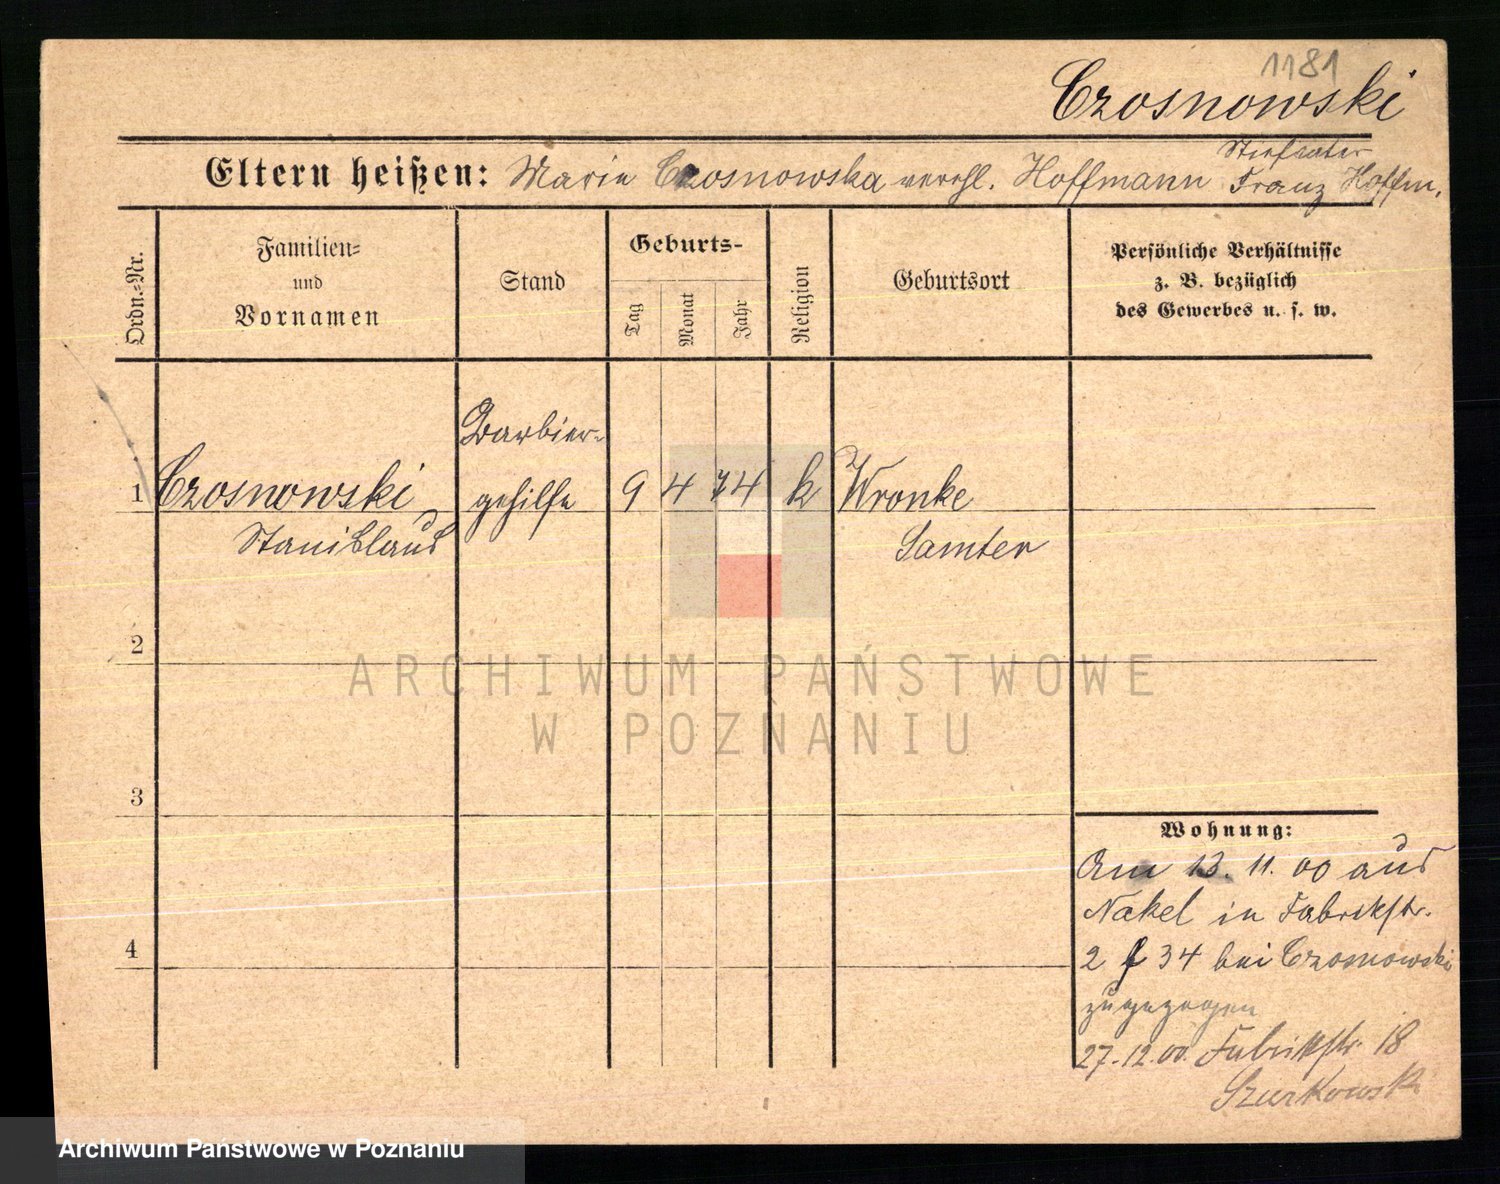 1181
Czosnowski
Eltern heißen: Marie Czosnowska verehl. Hoffmann Stiefvater Franz Hoffm.
Ordn.-Nr.
Familien-
und
Vornamen
Stand
Geburts-
Tag
Monat
Jahr
Religion
Geburtsort
Persönliche Verhältnisse
z. B. bezüglich
des Gewerbes u. s. w.
Barbier-
1 Czosnowski gehilfe 9 4 74 k Wronke
Stanislaus Samter
2
ARCHIWUM PAŃSTWOWE
W POZNANIU
3
Wohnung:
Am 13. 11. 00 aus
Nakel in Fabrikstr.
4
2 34 bei Czosnowski
zugezogen
27.12.00. Fabrikstr. 18
Szurkowski
Archiwum Państwowe w Poznaniu